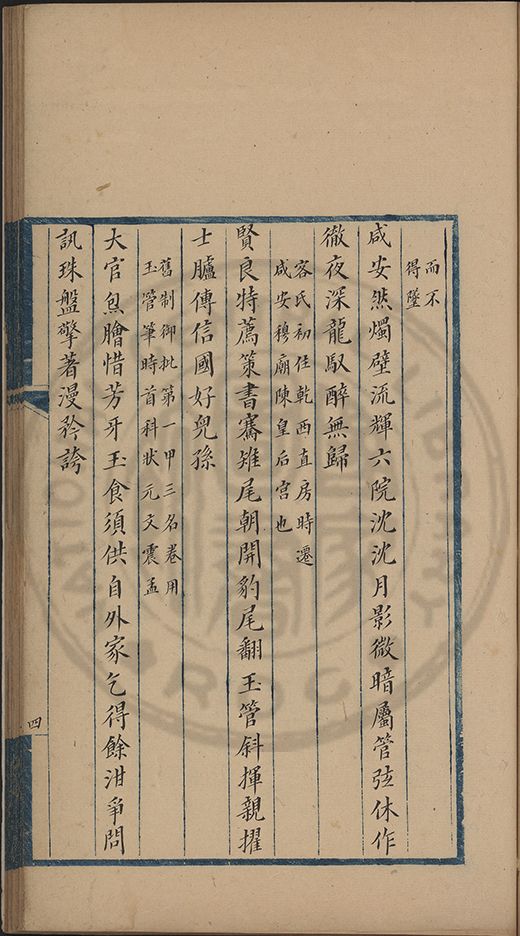 而不
得墜
咸安然燭壁流輝六院沈沈月影微暗屬管弦休作
徹夜深龍馭醉無歸
客氏初住乾西直房時遷
咸安穆廟陳皇后宮也
賢良特薦策書騫雉尾朝開豹尾翻玉管斜揮親擢
士臚傳信國好兒孫
舊制御批第一甲三名卷用
玉管筆時首科狀元文震孟
大官魚膾惜芳牙玉食須供自外家乞得餘泔爭問
訊珠盤擎著漫矜誇
四